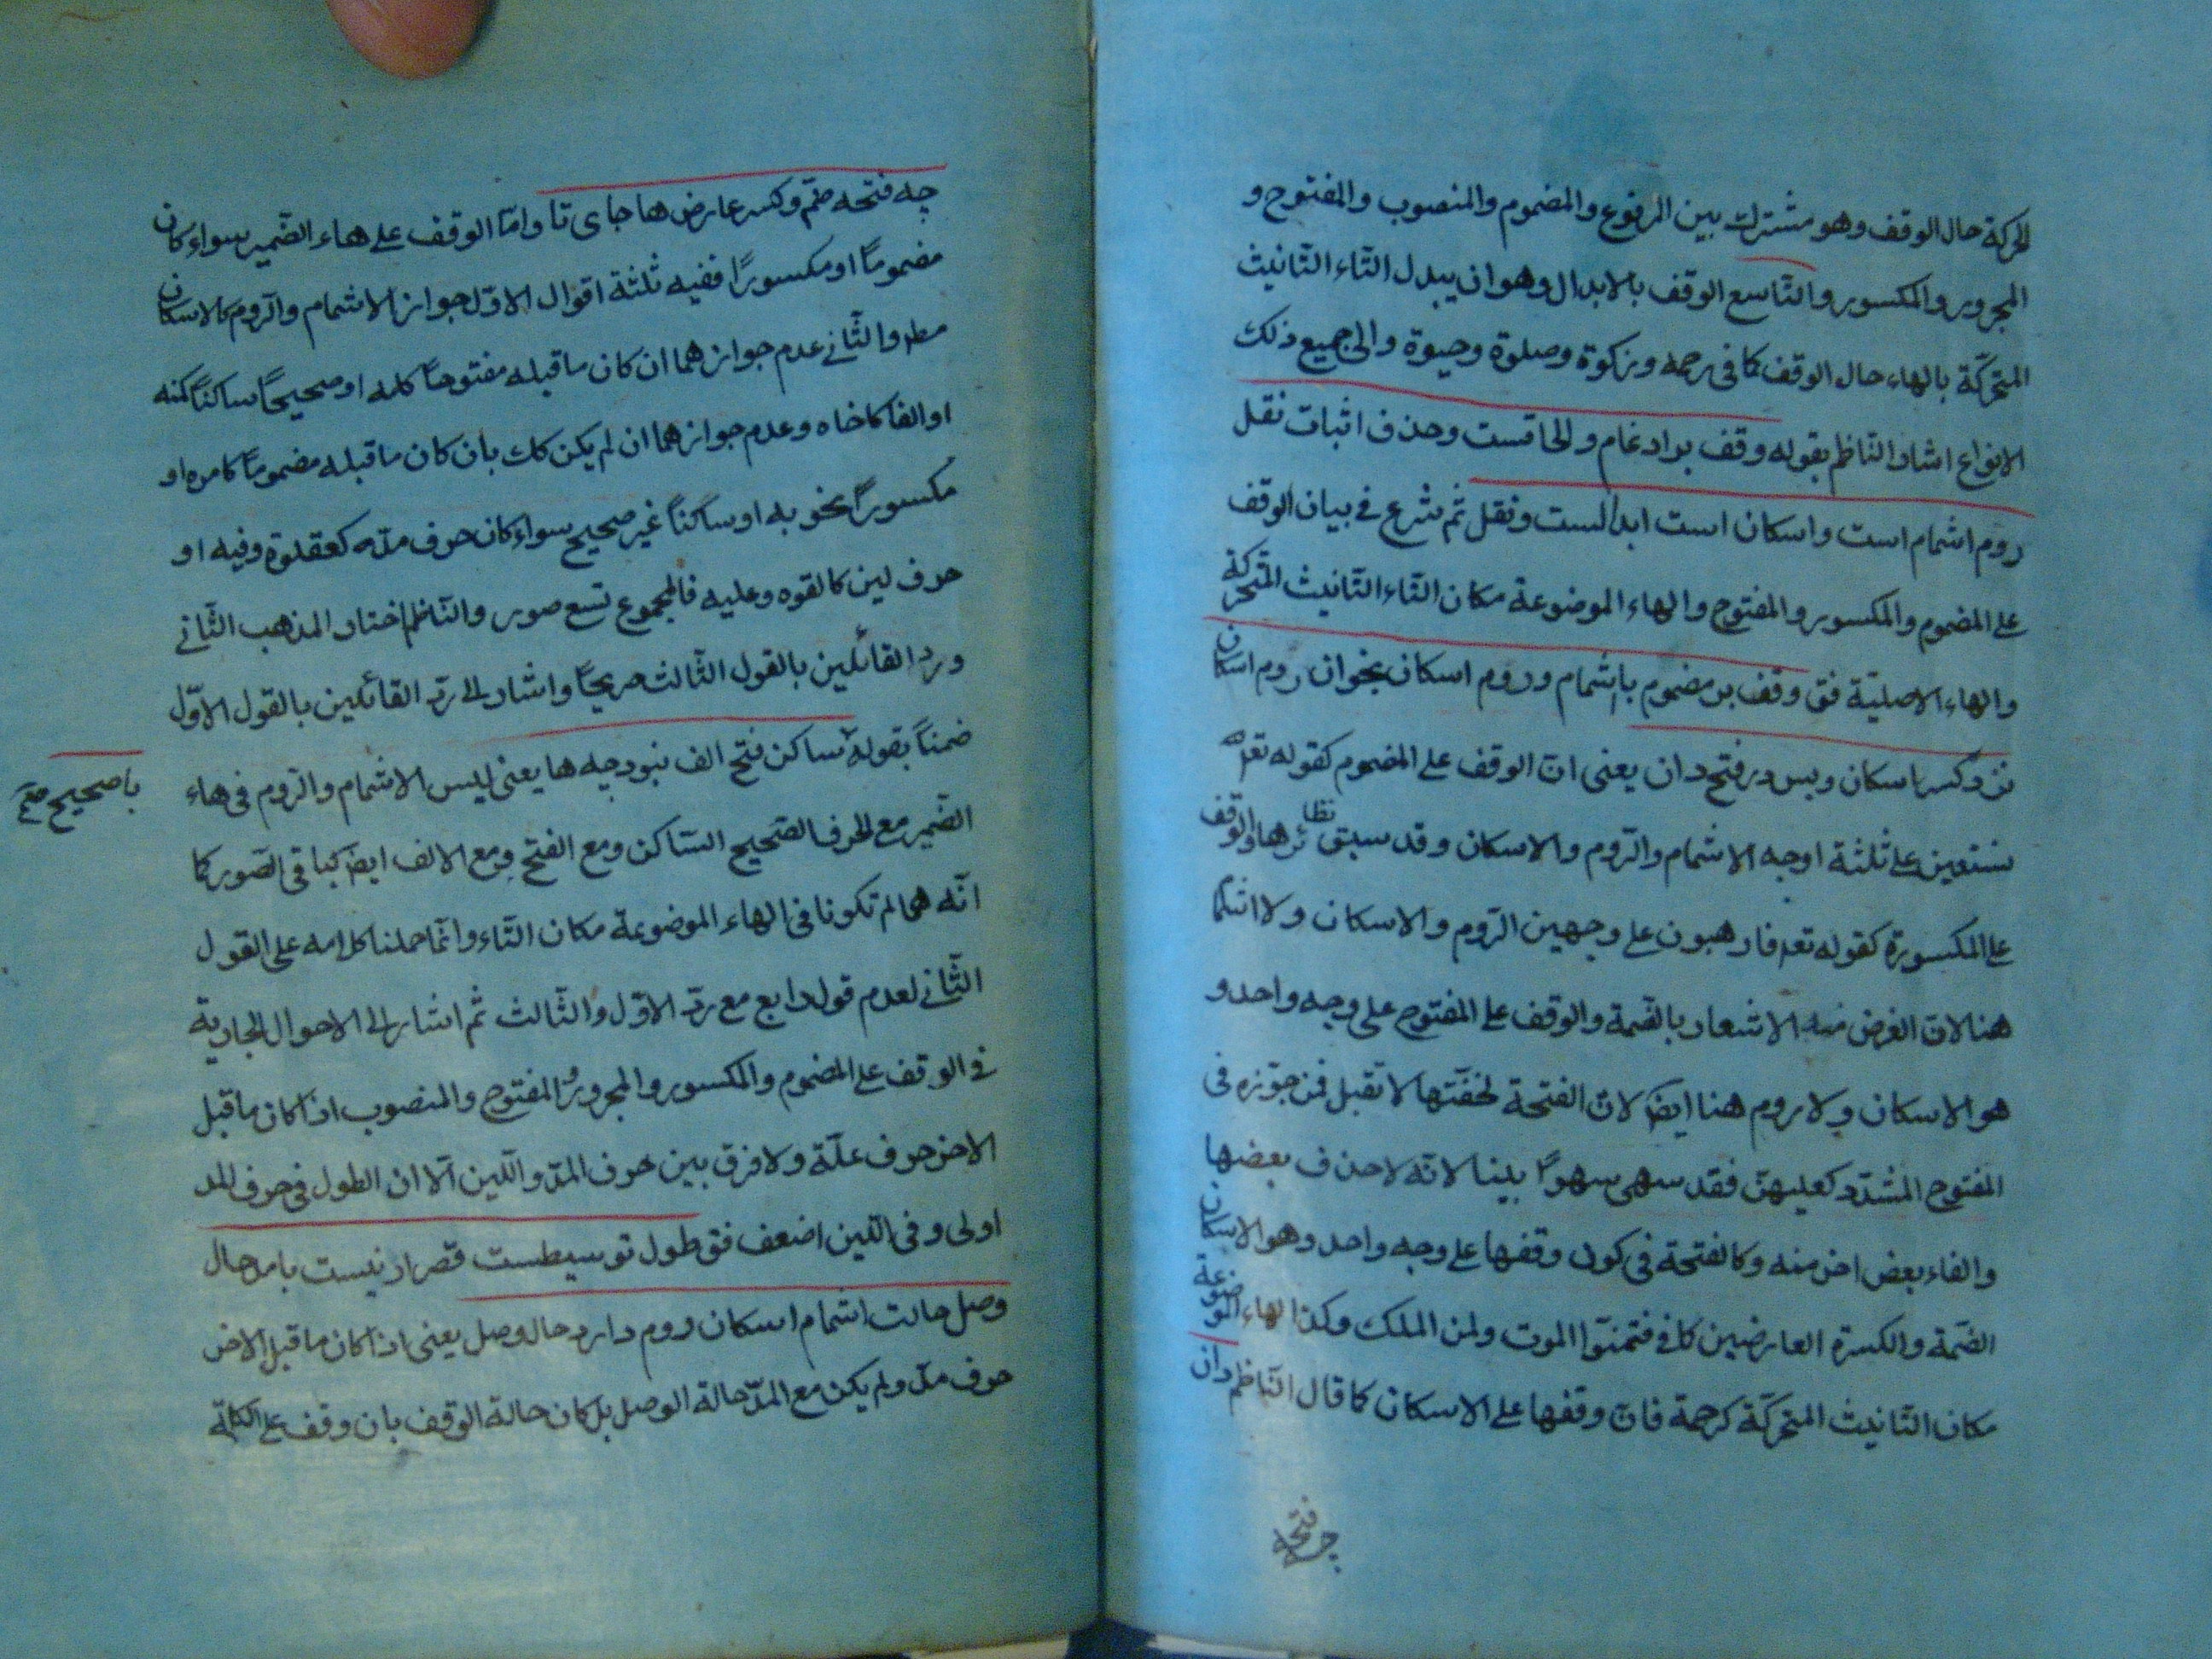 الحركة حال الوقف وهو مشترك بين المرفوع والمضموم والمنصوب والمفتوح و
المجرور والمكسور والتاسع الوقف بالابدال وهو ان يبدل التاء التانيث
المتحركة بالهاء حال الوقف كما فى رحمه وزكوة وصلوة وحيوة والى جميع ذلك
الانواع اشار الناظم بقوله وقف بر ادغام والحاقست وحذف اثبات نقل
روم اشمام است واسكان است ابدالست ونقل ثم شرع فى بيان الوقف
على المضموم والمكسور والمفتوح والهاء الموضوعة مكان التاء التانيث المتحركة
والهاء الاصلية فق وقف بر مضموم باشمام وروم اسكان بخوان روم اسكان
نزد كسر اسكان وبس در فتح دان يعنى ان الوقف على المضموم كقوله تعالى
نستعين على ثلثة اوجه الاشمام والروم والاسكان وقد سبق نظائرها والوقف
على المكسورة كقوله تعد فارهبون على وجهين الروم والاسكان ولا اشمام
هنا لان الغرض منه الاشعار بالضمة والوقف على المفتوح على وجه واحد و
هو الاسكان ولا روم هنا ايض لان الفتحة لخفتها لا تقبل فمن جوزه فى
المفتوح المشدد كعليهن فقد سهى سهوًا بينا لانه لا حذف بعضها
والفاء بعض اخر منه وكالفتحة فى كون وقفها على وجه واحد وهو الاسكان
الضمة والكسرة العارضين كما فى فتمنوا الموت ولمن الملك وكذا الهاء الموضوعة
مكان التانيث المتحركة كرحمة فان وقفها على الاسكان كما قال الناظم دان
چه فتحه
چه فتحه ضم وكسر عارض ها جاى تا واما الوقف على هاء الضمير سواء كان
مضموماً او مكسوراً ففيه ثلثة اقوال الاول جواز الاشمام والروم كالاسكان
مط والثانى عدم جوازهما ان كان ما قبله مفتوحاً كله او صحيحاً ساكناً كنه
او الفا كاخاه وعدم جوازهما ان لم يكن كك بان كان ما قبله مضموماً كامره او
مكسوراً نحو به او ساكناً غير صحيح سواء كان حرف مد كعقلوه وفيه او
حرف لين كالقوه وعليه فالمجموع تسع صور والناظم اختار المذهب الثانى
ورد القائلين بالقول الثالث صريحاً واشار الى رد القائلين بالقول الاول
ضمناً بقوله ساكن فتح الف نبود چه ها يعنى ليس الاشمام والروم فى هاء
با صحيح صح
الضمير مع الحرف الصحيح الساكن ومع الفتح ومع الالف ايض كباقى الصور كما
انه هما لم تكونا فى الهاء الموضوعة مكان التاء وانما حملنا كلامه على القول
الثانى لعدم قول رابع مع رد الاول والثالث ثم اشار الى الاحوال الجارية
فى الوقف على المضموم والمكسور والمجرور والمفتوح والمنصوب اذا كان ما قبل
الاخر حرف علة ولا فرق بين حرف المد واللين الا ان الطول فى حرف المد
اولى وفى اللين اضعف فق طول توسيطست قصر ار نيست با مد حال
وصل حالت اشمام اسكان روم دارد حال وصل يعنى اذا كان ما قبل الاخر
حرف مد ولم يكن مع المد حالة الوصل بل كان حالة الوقف بان وقف على الكلمة